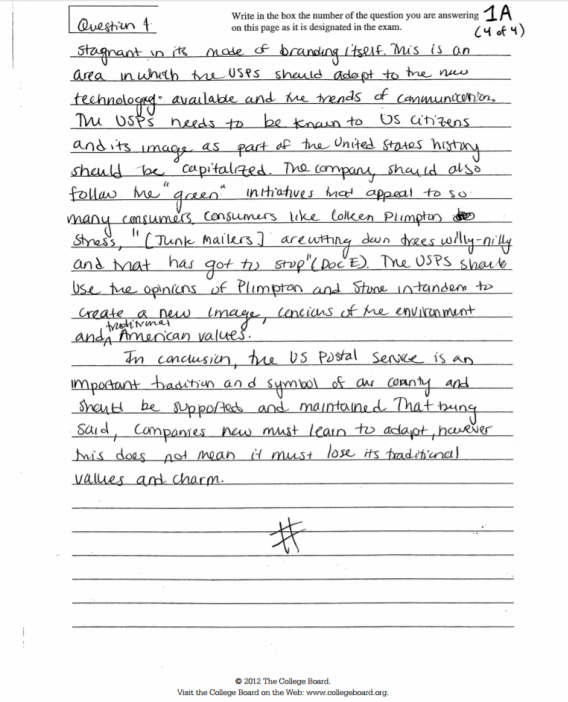 Question 1
Write in the box the number of the question you are answering
on this page as it is designated in the exam.
1A
(4 of 4)
stagnant in its mode of branding itself. This is an
area in which the USPS should adapt to the new
technology available and the trends of communication.
The USPS needs to be known to US citizens
and its image as part of the United States history
should be capitalized. The company should also
follow the "green" initiatives that appeal to so
many consumers. Consumers like Colleen Plimpton
stress, "[Junk Mailers] are cutting down trees willy-nilly
and that has got to stop" (Doc E). The USPS should
use the opinions of Plimpton and Stone in tandem to
create a new image, concious of the environment
and traditional American values.
In conclusion, the US Postal Service is an
important tradition and symbol of our county and
should be supported and maintained. That being
said, companies new must learn to adapt, however
this does not mean it must lose its traditional
values and charm.
#
© 2012 The College Board.
Visit the College Board on the Web: www.collegeboard.org.